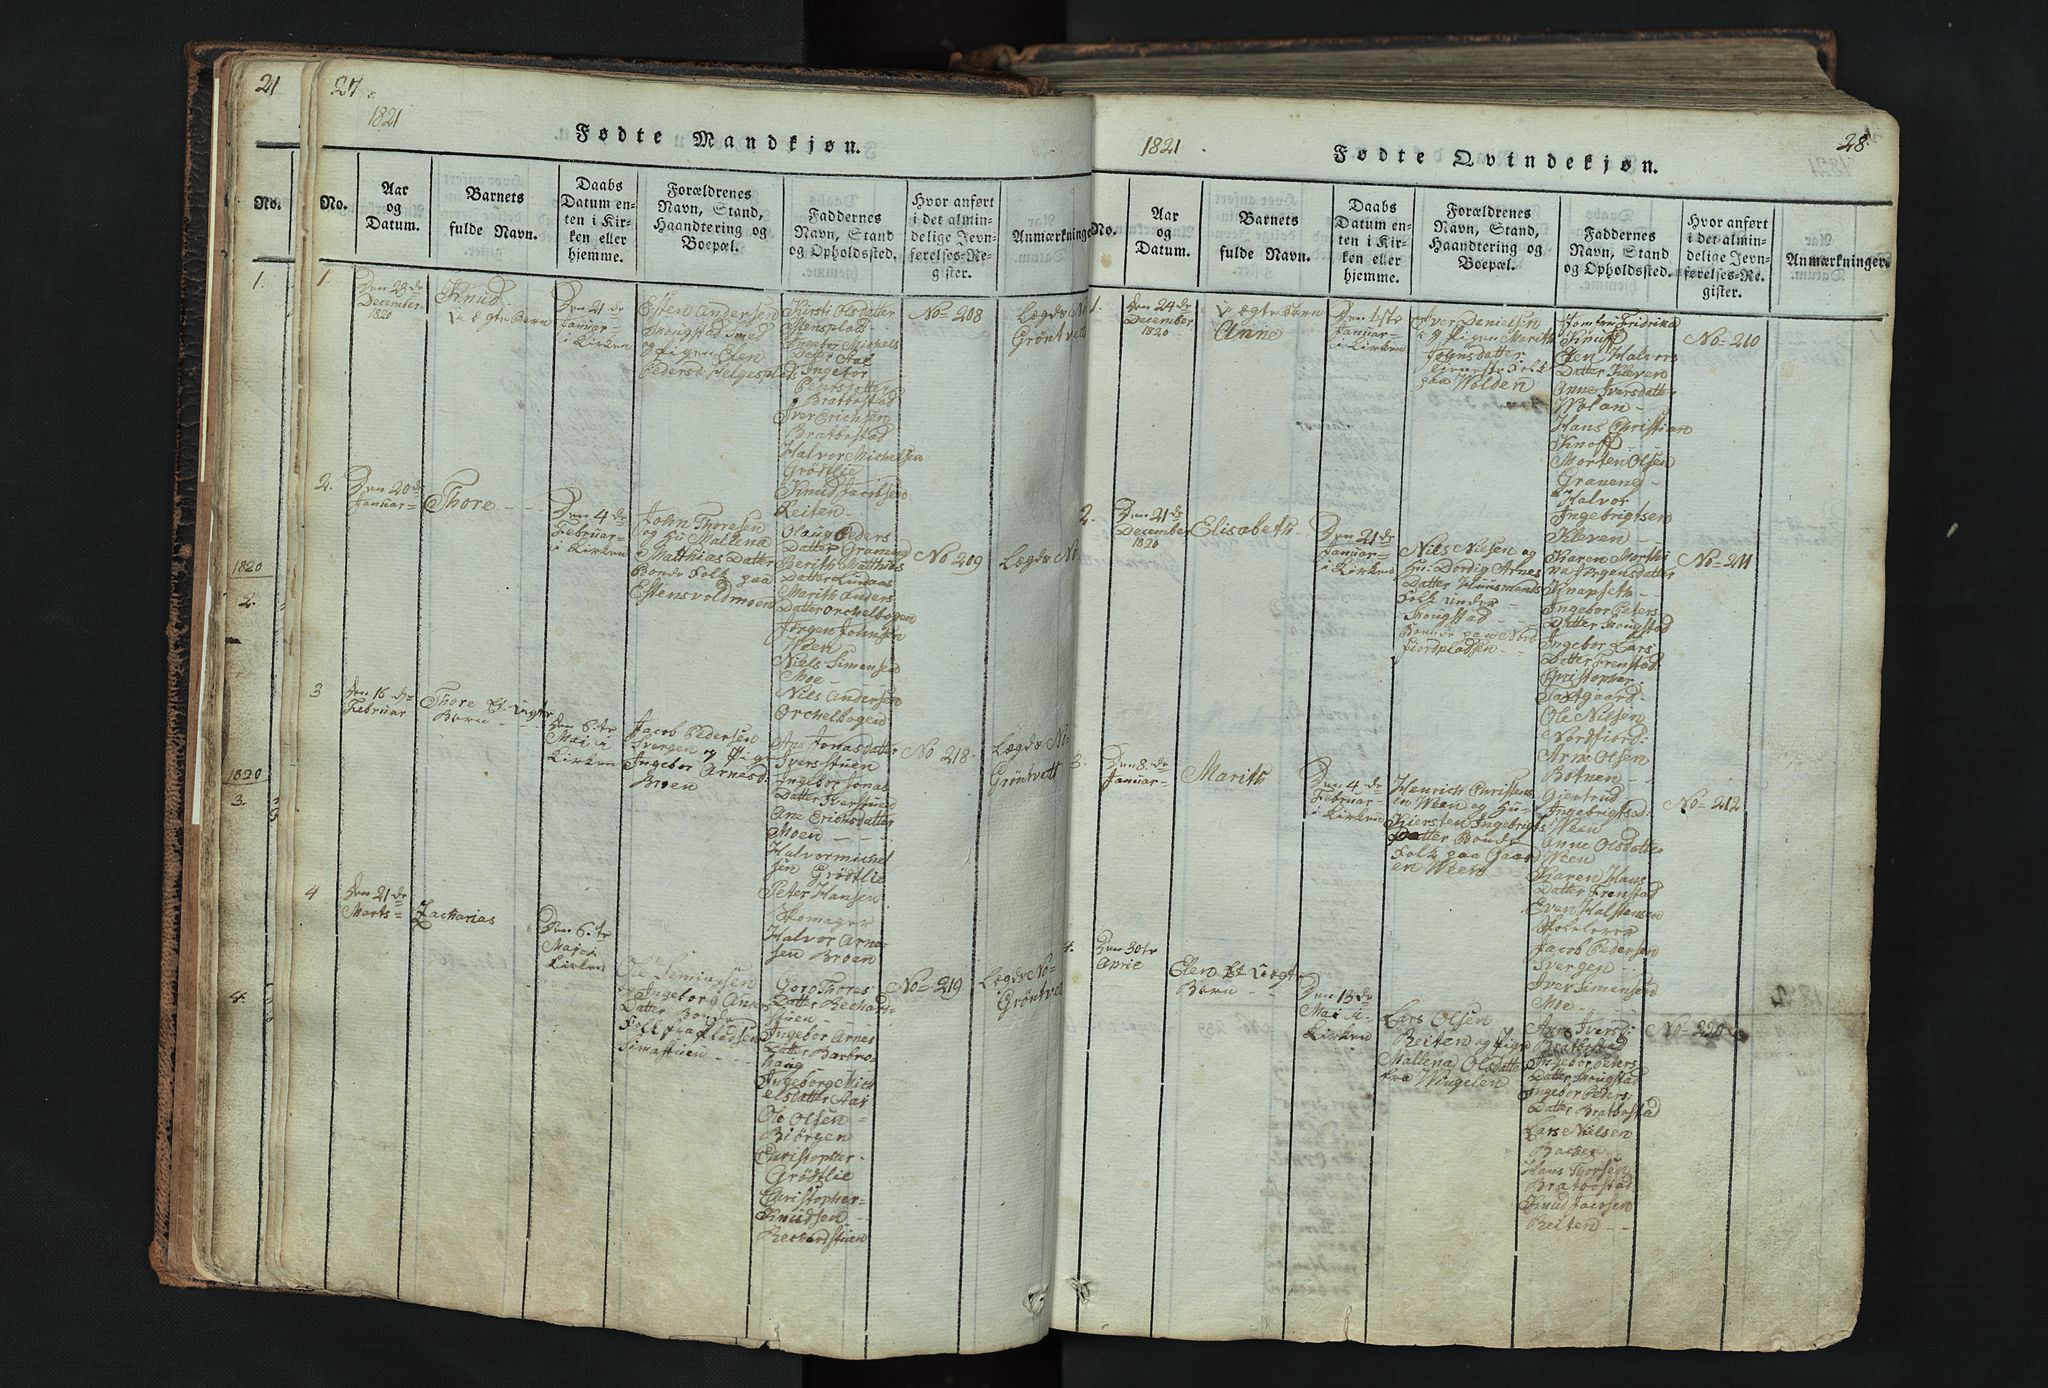 21
No.
1.
1820
2.
1820
3.
4.
27
1821
Fødte Mandkjøn.
No.
Aar
og
Datum.
Barnets
fulde Navn.
Daabs
Datum en-
ten i Kir-
ken eller
hjemme.
Forældrenes
Navn, Stand,
Haandtering og
Boepæl.
Faddernes
Navn, Stand
og Opholdssted.
Hvor anført
i det almin-
delige Jevn-
førelses-Re-
gister.
Anmærkninge
1.
Den 28de
December
1820
Knud
U ægte Barn
Den 21de
Januar
i Kirken
Esten Andersen
Skougstad med
og Pigen Elen
Pedersd: Helgesplads
Kirsti Olsdatter
Estensplads
Ingebor Michels
Datter Aas
Ingebor
Pedersdatter
Bratbostad
Iver Erichsen
Bratbostad
Halvor Michelsen
Grødtlie
Knud Jacobsen
Reiten
No= 208
Lægds No
Gröntvett
2.
Den 20de
Januar
Thore
Den 4de
Februar
i Kirken
John Thoresen
og Hu Mallena
Matthias Datter
Bonde Folk paa
Estensvoldmoen
Olaug Peders
Datter Graneng
Berith Matthias
Datter Lunaas
Marith Anders
Datter Orchelbogen
Jörgen Johnsen
Ween
Niels Simensen
Moe
Nils Andersen
Orchelbogen
No 209
Lægds No
3
Den 16de
Februar
Thore Et Uægte
Barn
Den 6.te
Mai i
Kirken
Jacob Pedersen
Svergen og Pig
Ingebor Arnesd.
Broen
Ane Jonasdatter
Iversstuen
Ingebor Jonas
Datter Iverstuen
Ane Erichsdatter
Moen
Halvor Michel
sen Grødtlie
Peter Hansen
Halvor Arne
sen Broen
No 218
Lægds No
Gröntvett
4
Den 21de
Marts
Zacharias
Den 6.te
Mai i
Kirken
Ole Semingsen
og Ingeborg Anne
Datter Bonde
Folk paa Pladsen
Simastuen
Goro Thores
Datter Rechard-
stuen
Ingebor Arnes
Datter Barbro-
haug
Ingeborg Mich
elsdatter Aas
Ole Olsen
Biörgen
Christopher
Grödtlie
Christopher
Knudsen
Rechardstuen
No= 219
Lægds No=
Gröntvett
1821
Fødte Qvindekjøn.
28.
No.
Aar
og
Datum.
Barnets
fulde Navn.
Daabs
Datum en-
ten i Kir-
ken eller
hjemme.
Forældrenes
Navn, Stand,
Haandtering og
Boepæl.
Faddernes
Navn, Stand
og Opholdssted.
Hvor anført
i det almin-
delige Jevn-
førelses-Re-
gister.
Anmærkninger.
1.
Den 24de
December
1820
U ægte Barn
Anne
Den 1ste
Januar
i Kirken
Iver Danielsen
og Pigen Marith
Johnsdatter
Folk
paa Wolden
Jomfru Fridrika
Knuff
Elen Halvors
Datter Kleven
Anne Iversdatter
Wolan
Hans Christian
Knoff
Morten Olsen
Graneng
Halvor
Ingebrigtsen
Kleven
No= 210
2.
Den 21de
December
1820
Elisabeth
Den 21de
Januar
i Kirken
Nils Nielsen og
Hu: Dordig Arnes
Datter Huusmands
Folk under
Skougstad
Bonde paa Nord
fiordpladsen
Karen Marthi
na Jörgensdatter
Knapseth
Ingebor Peters
Datter Skougstad
Ingebor Lars
Datter Frenstad
Christopher
Saxtgaard
Ole Nilsen
Nordfiord
Arne Olsen
Botnen
No= 211
3.
Den 8de
Januar
Marith
Den 4de
Februar
i Kirken
Henrich Christens
en Ween og Hu
Kiersten Ingebrigts
Datter Bonde
Folk paa Gaar
en Ween
Giertrud
Ingebrigtsd.
Ween
Anne Olsdatter
Ween
Karen Hans
Datter Frenstad
Even Halstensen
Jacob Pedersen
Svergen
Iver Simensen
Moe
No= 212
4.
Den 30te
Aprie
Elen Et Uægte
Barn
Den 13de
Mai i
Kirken
Lars Olsen
Reiten og Pige
Mallena Olsdatter
fra Wingelen
Ane Iversd:
Bratbostad
Ingebor Peters
Datter Skougstad
Ingebor Peders:
Datter Bratbostad
Lars Nielsen
Backen
Hans Thorsen
Bratbostad
Knud Jacobsen
Reiten
No= 220